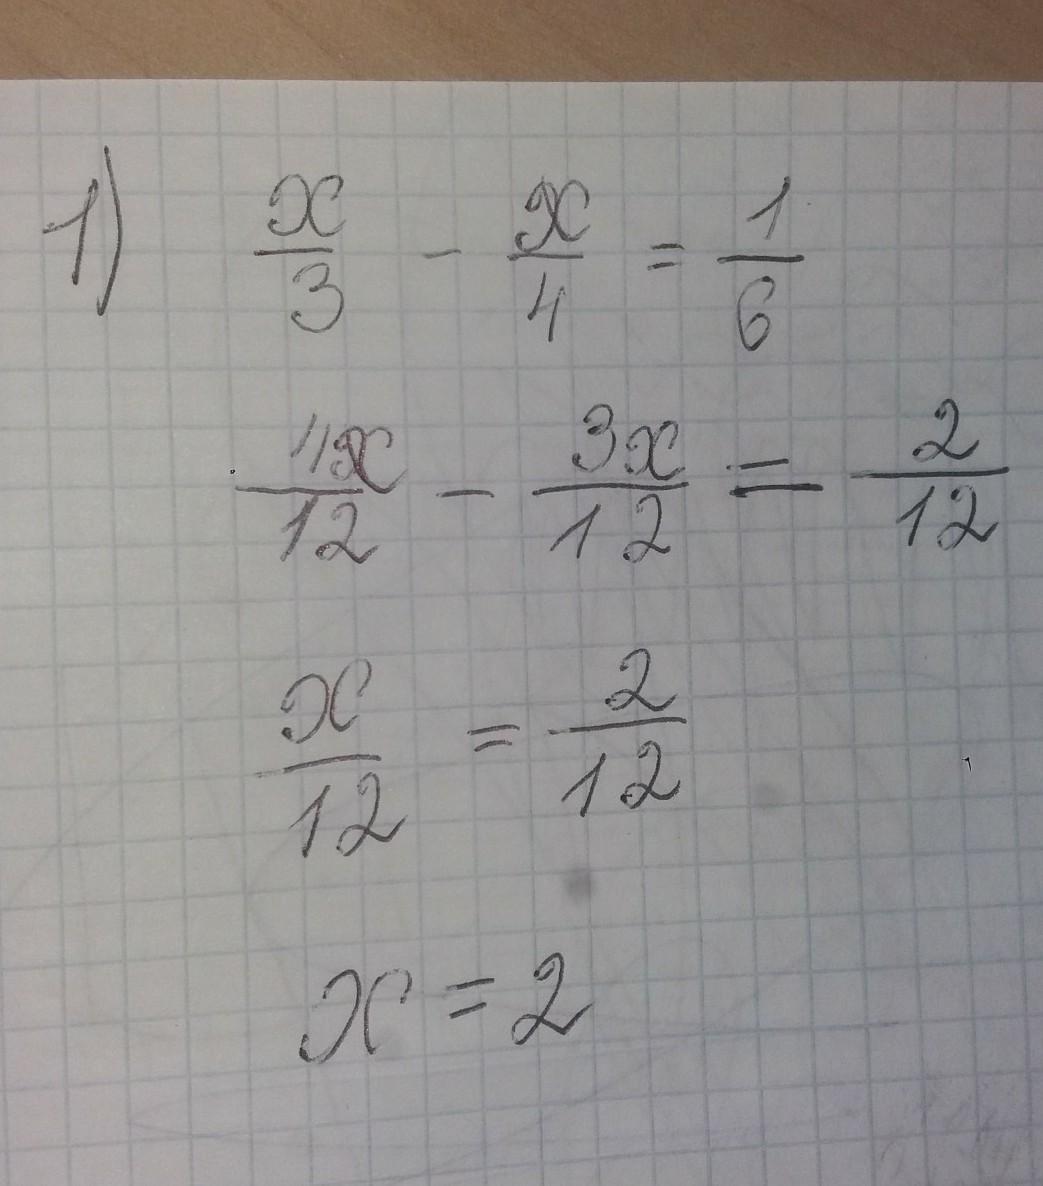 1) x/3 - x/4 = 1/6
4x/12 - 3x/12 = 2/12
x/12 = 2/12
x = 2